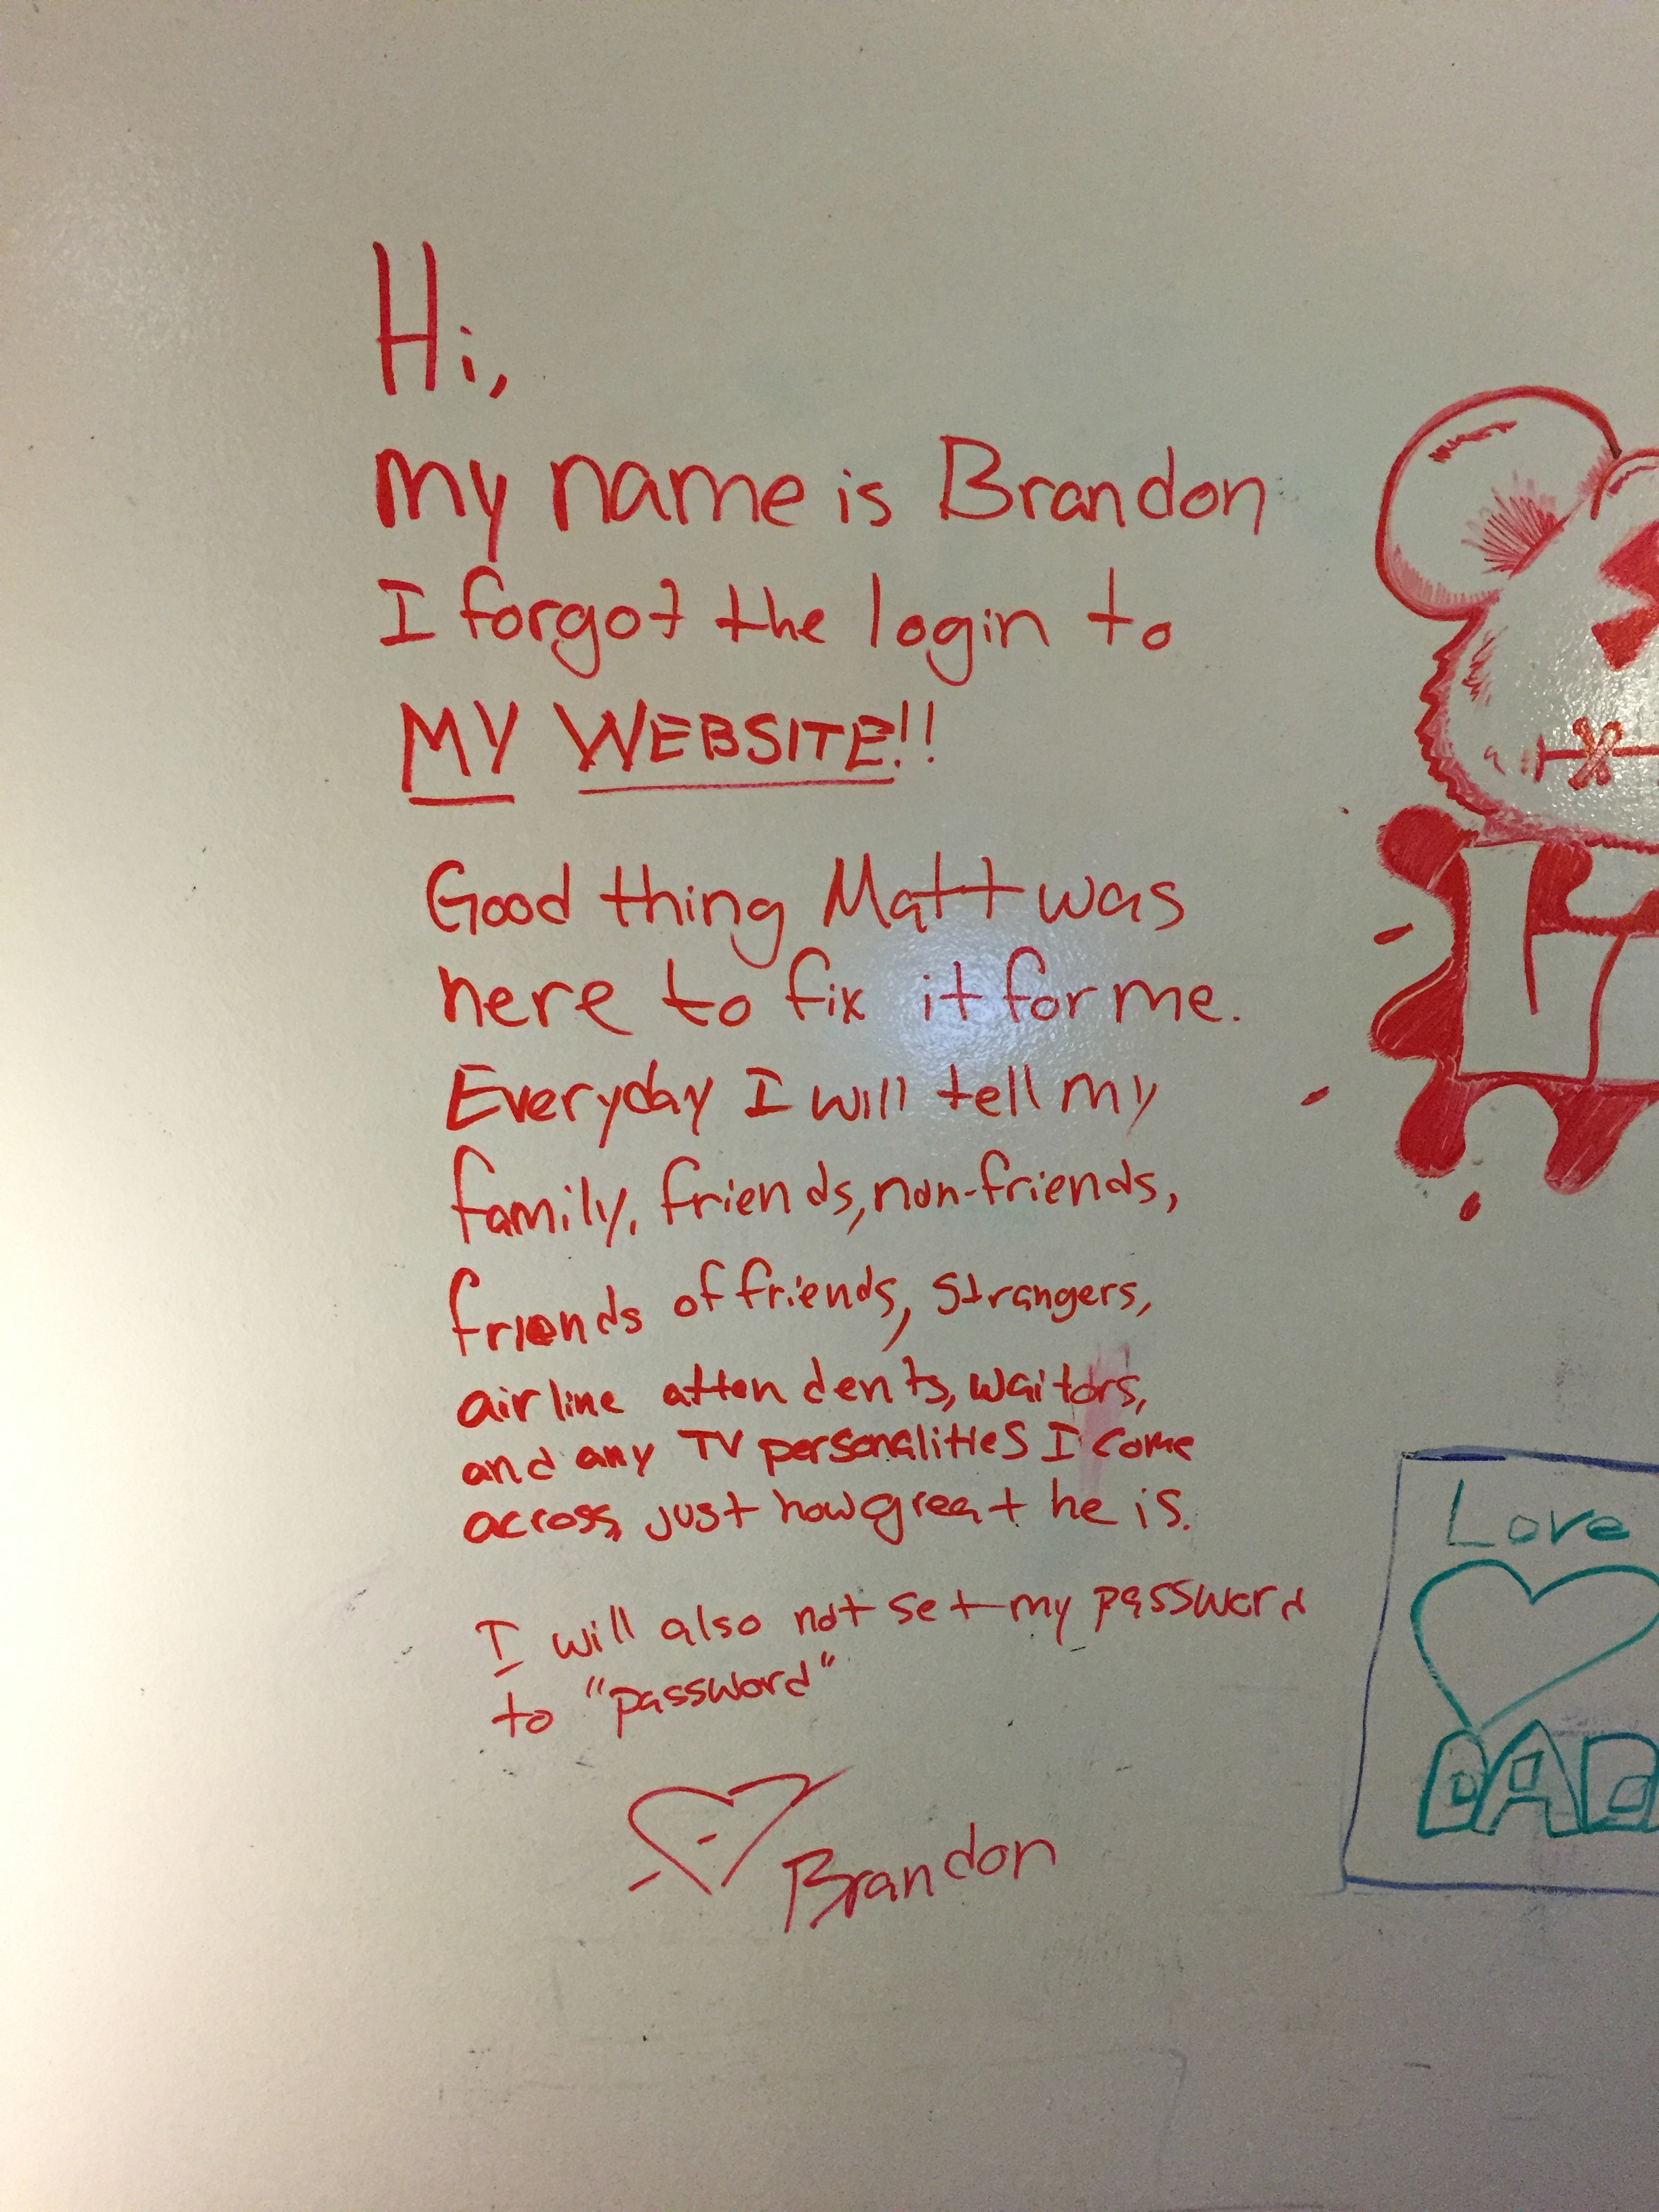 Hi,
my name is Brandon
I forgot the login to
MY WEBSITE!!
Good thing Matt was
here to fix it for me.
Everyday I will tell my
family, friends, non-friends,
friends of friends, strangers,
airline attendents, waitors,
and any TV personalities I come
across, just how great he is.
I will also not set my password
to "password"
Brandon
Love
DAD